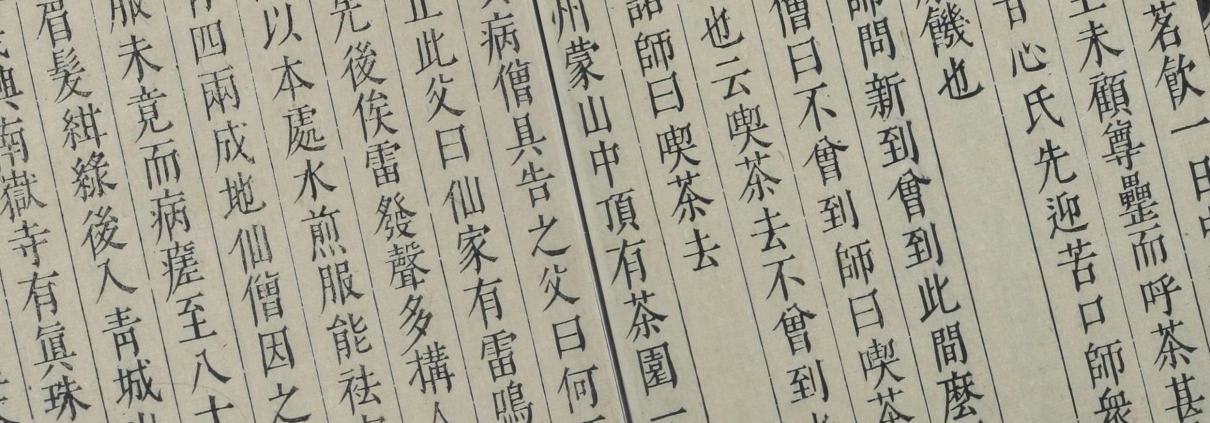 茗飲一
未顧尊罍而呼茶甚
心氏先迎苦口師衆
饑也
師問新到曾到此間麽
僧曰不曾到師曰喫茶
也云喫茶去不曾到
師曰喫茶去
州蒙山中頂有茶園一
病僧具告之父曰何
止此父曰仙家有雷鳴
先後俟雷發聲多構人
以本處水煎服能祛
四兩成地仙僧因之
服未竟而病瘥至八十
眉髮紺綠後入青城
南嶽寺有真珠